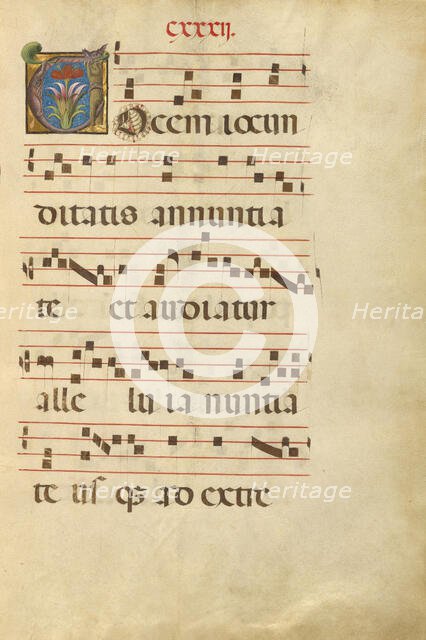 CXXXIJ.
Vocem iocun
Heritage Heritage
ditatis annuntia
©
te et audiatur
Heritage Heritage Heritage
alle lu ia nuntia
te usqꝫ ad extre
Heritage Heritage